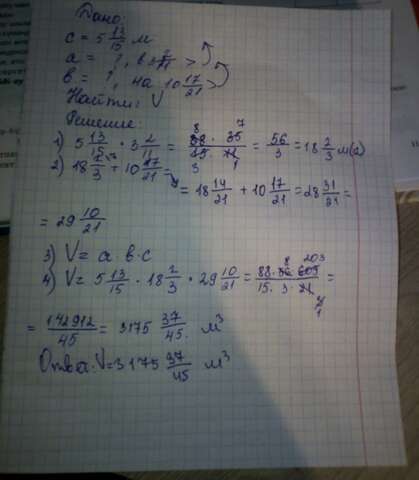 Дано:
c = 5 13/15 м
a = ?, в 3 2/11 >
в = ?, на 10 17/21 >
Найти: V
Решение:
1) 5 13/15 · 3 2/11 = 88 · 35 / 15 · 11 = 56/3 = 18 2/3 м(a)
2) 18 2/3 + 10 17/21 =
= 18 14/21 + 10 17/21 = 28 31/21 =
= 29 10/21
3) V = a · в · c
4) V = 5 13/15 · 18 2/3 · 29 10/21 = 88 · 56 · 609 / 15 · 3 · 21 =
= 142912/45 = 3175 37/45 м³
Ответ: V = 3175 37/45 м³